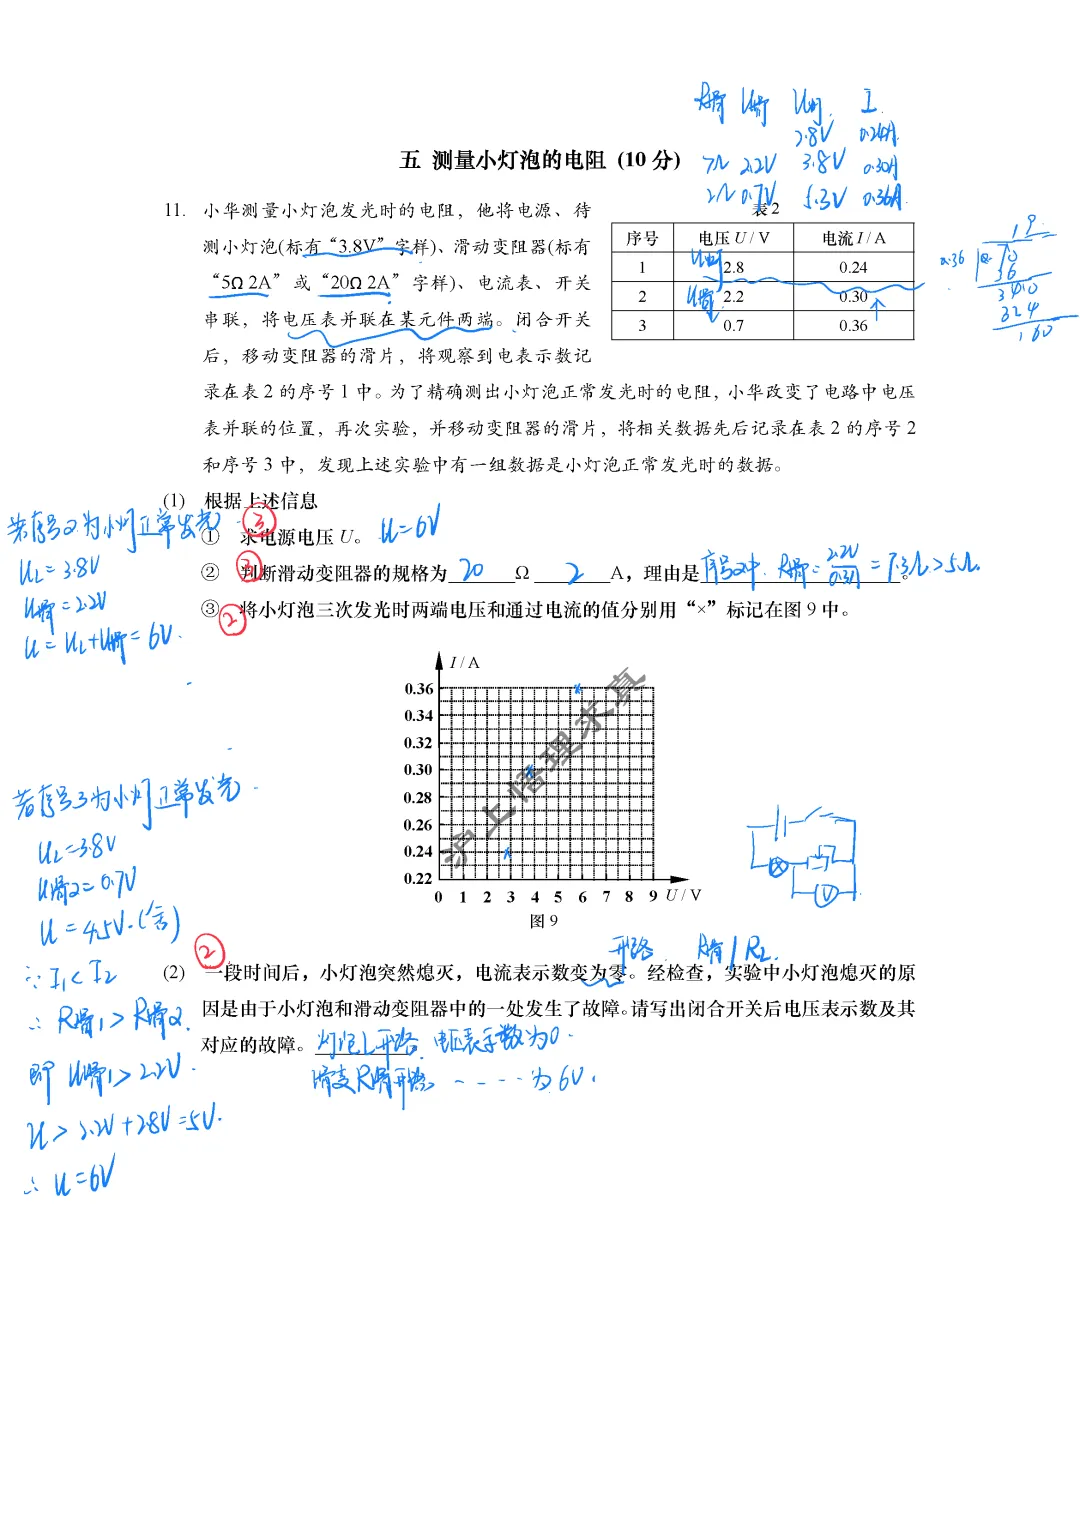 R滑 U滑 U灯 I
2.8V 0.24A
7Ω 2.2V 3.8V 0.30A
2Ω 0.7V 5.3V 0.36A
五 测量小灯泡的电阻 (10 分)
11. 小华测量小灯泡发光时的电阻，他将电源、待
测小灯泡(标有“3.8V”字样)、滑动变阻器(标有
“5Ω 2A” 或 “20Ω 2A” 字样)、电流表、开关
串联，将电压表并联在某元件两端。闭合开关
后，移动变阻器的滑片，将观察到电表示数记
表 2
序号 电压 U / V 电流 I / A
1 2.8 0.24
2 2.2 0.30
3 0.7 0.36
U灯
U滑
录在表 2 的序号 1 中。为了精确测出小灯泡正常发光时的电阻，小华改变了电路中电压
表并联的位置，再次实验，并移动变阻器的滑片，将相关数据先后记录在表 2 的序号 2
和序号 3 中，发现上述实验中有一组数据是小灯泡正常发光时的数据。
(1) 根据上述信息
③
① 求电源电压 U。 U=6V
③
② 判断滑动变阻器的规格为 20 Ω 2 A，理由是 序号2中，R滑=2.2V/0.3A=7.3Ω>5Ω 。
②
③ 将小灯泡三次发光时两端电压和通过电流的值分别用“×”标记在图 9 中。
若序号2为小灯正常发光
UL=3.8V
U滑=2.2V
U=UL+U滑=6V.
I / A
0.36
0.34
0.32
0.30
0.28
0.26
0.24
0.22
0 1 2 3 4 5 6 7 8 9 U / V
图 9
沪上悟理求真
若序号3为小灯正常发光
UL=3.8V
U滑2=0.7V
U=4.5V.(舍)
∵ I1<I2
∴ R滑1>R滑2.
即 U滑1>2.2V.
U>2.2V+2.8V=5V.
∴ U=6V
V
开路 R滑/RL
②
(2) 一段时间后，小灯泡突然熄灭，电流表示数变为零。经检查，实验中小灯泡熄灭的原
因是由于小灯泡和滑动变阻器中的一处发生了故障。请写出闭合开关后电压表示数及其
对应的故障。 灯泡L开路，电压表示数为0.
滑变R滑开路，----为6V.